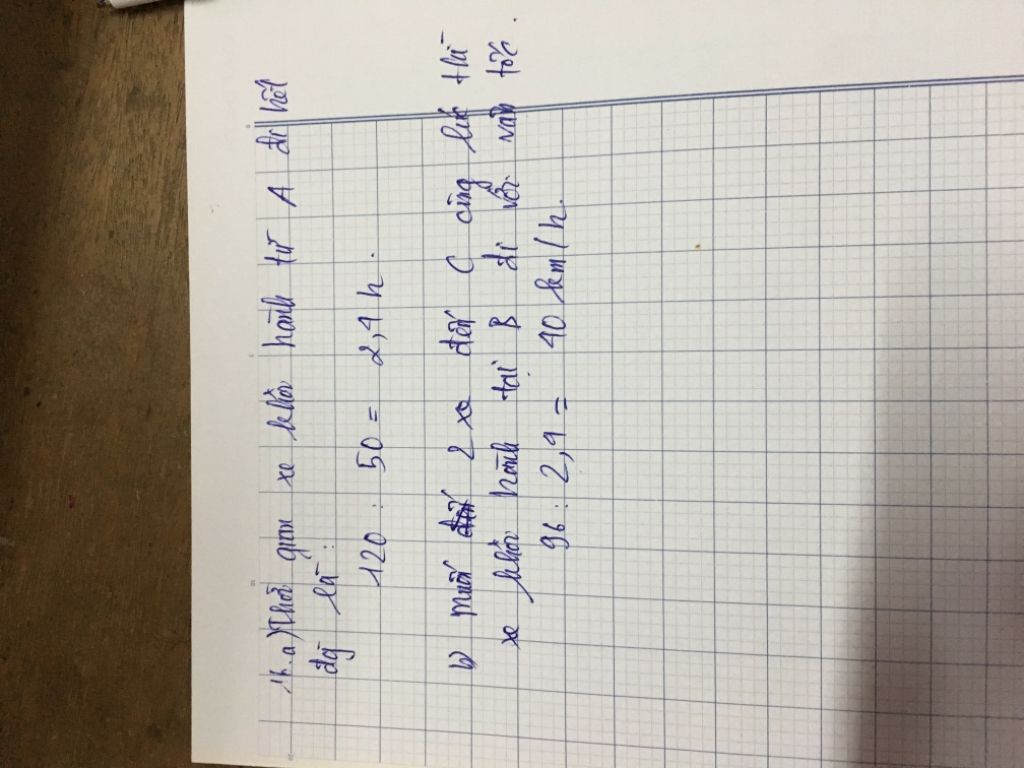 14. a) Thời gian xe khởi hành từ A đi hết
đó là:
120 : 50 = 2,4 h.
b) Muốn 2 xe đến C cùng lúc thì
xe khởi hành tại B đi với vận tốc.
96 : 2,4 = 40 km/h.